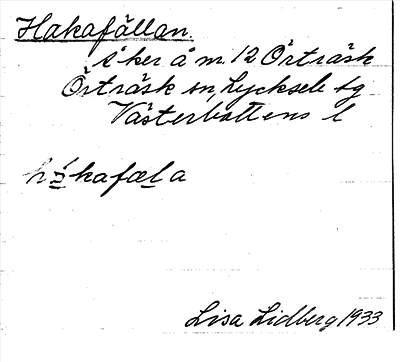 Hakafällan.
s' ker å m 12 Örträsk
Örträsk sn, Lycksele tg
Västerbottens l
hákafæla
Lisa Lidberg 1933